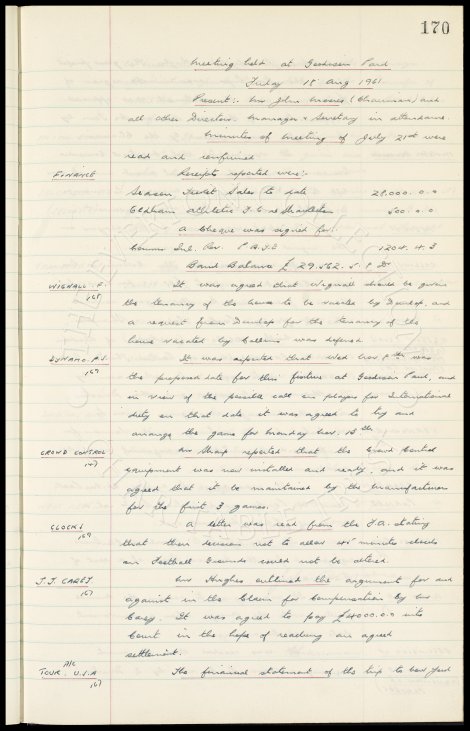 170
Meeting held at Goodison Park
Friday 18 Aug 1961
Present:- Mr John Moores (Chairman) and
all other Directors. Manager & Secretary in attendance.
Minutes of meeting of July 21st were
read and confirmed
FINANCE Receipts reported were:-
Season Ticket Sales to date 28,000. 0. 0
Oldham Athletic F.C. re 500. 0. 0
A Cheque was signed for:-
Comm Inl. Rev. P.A.Y.E 1204. 4. 3
Bank Balance £ 29.562. 5. 8 Dr
WIGNALL F. It was agreed that Wignall should be given
168 the tenancy of the house to be vacated by Dunlop, and
a request from Dunlop for the tenancy of the
house vacated by Collins was deferred.
DYNAMO It was reported that Wed Nov 8th was
169 the proposed date for this fixture at Goodison Park, and
in view of the possible call on players for International
duty on that date it was agreed to try and
arrange the game for Monday Nov. 13th.
CROWD CONTROL Mr Sharp reported that the Crowd Control
equipment was now installed and ready, and it was
agreed that it be maintained by the manufacturers
for the first 3 games.
CLOCKS A letter was read from the F.A. stating
169 that their decision not to allow 45 minutes clocks
on Football Grounds would not be altered.
J.J. CAREY Mr Hughes outlined the argument for and
167 against in the Claim for Compensation by Mr
Carey. It was agreed to pay £4000.0.0 into
Court in the hope of reaching an agreed
settlement.
A/C
TOUR U.S.A The financial statement of the trip to New York
167